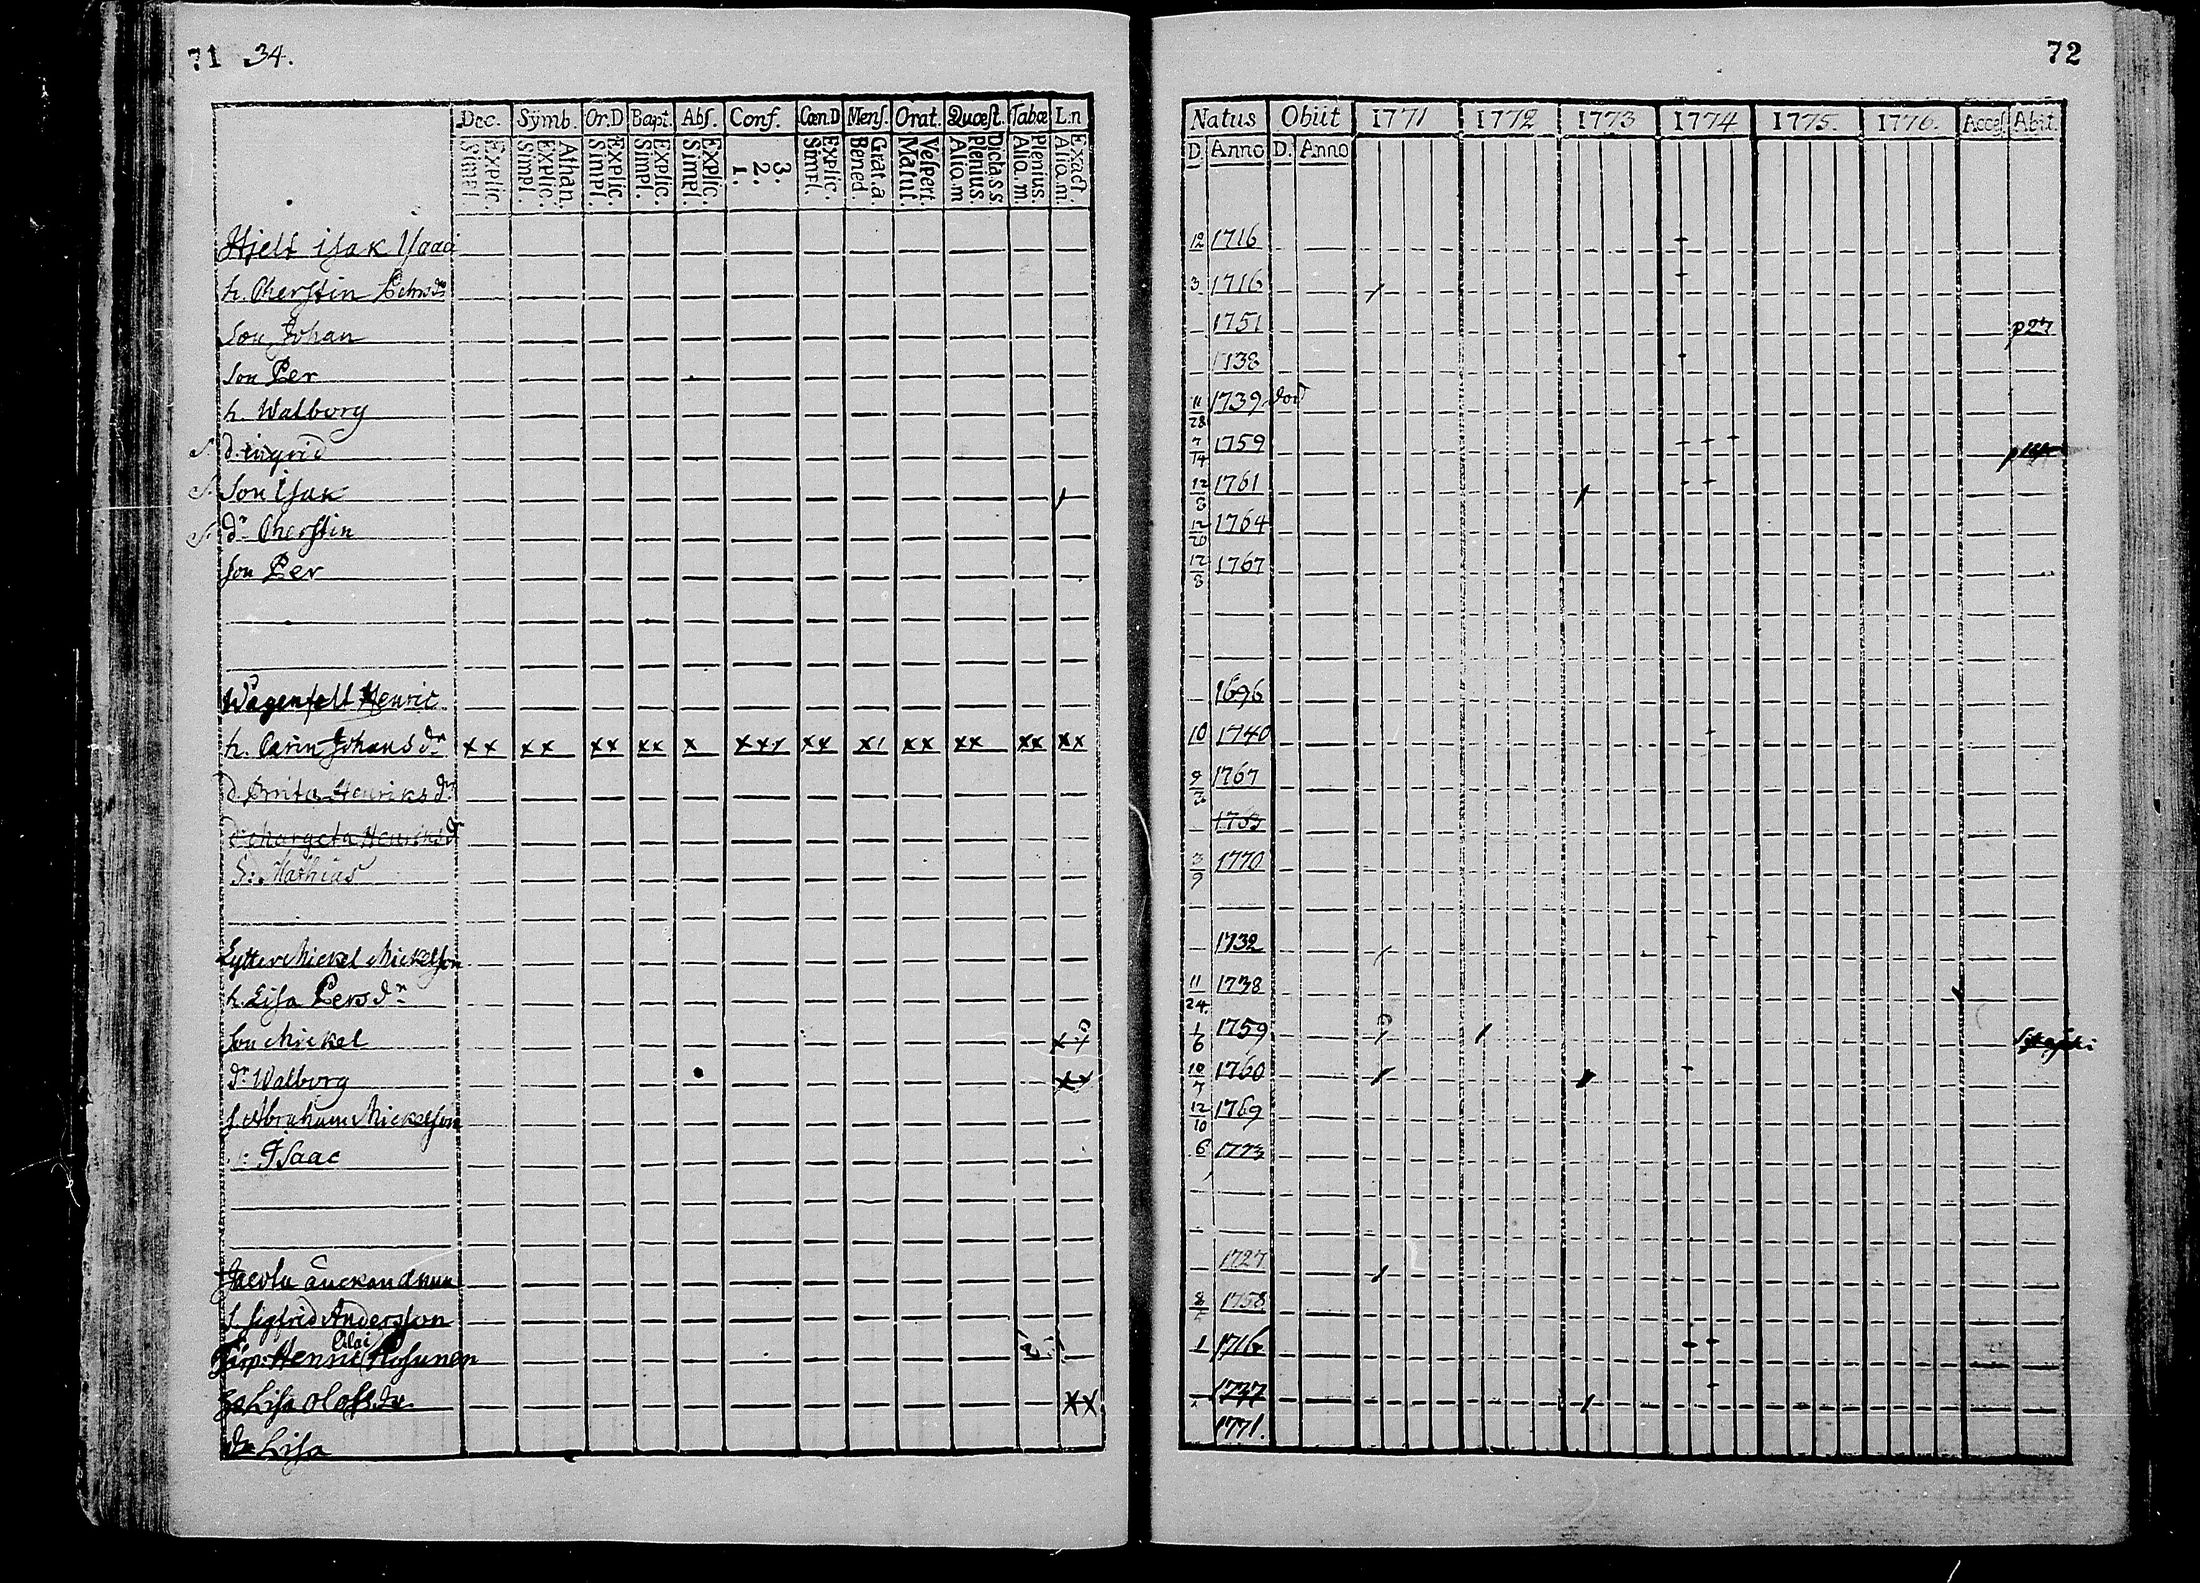 71 34.
Dec. Symb. Or.D Bapt. Abs. Conf. Cœn.D Mens. Orat. Quæst. Tabæ L.n
Explic. Simpl. Athan. Explic. Simpl. Explic. Simpl. Explic. Simpl. Explic. Simpl. 3. 2. 1. Explic. Simpl. Grat.a Bened. Vespert. Matut. Dicta.s.s Plenius. Aliq.m Plenius. Aliq.m. Exact. Aliq.m.
Hjelt isak
h. Cherstin
Son Johan
Son Per
h. Walborg
d. ingrid
Son isak
dr Cherstin
Son Per
Wägenfelt Henric
h. Carin Johansdr xx xx xx xx x xxx xx x xx xx xx xx
d. Brita Henriksdr
d. Margeta Henriksdr
S: Mathias
Lytter Mickel Mickelson
h. Lisa Persdr
Son Mickel x
dr Walborg xx
s. Abraham Mickelson
: Isaac
Jacobu änckan
S. Sigfrid Andersson
Henric Rosunen
Lisa Olofsdr. xx
dr Lisa
72
Natus Obiit 1771 1772 1773 1774 1775. 1776. Acces. Abit.
D. Anno D. Anno
12 1716
3 1716
1751 p27
1738
11/28 1739 död
7/14 1759
12/8 1761
12/20 1764
12/8 1767
1696
10 1740
9/3 1767
1763
3/9 1770
1732
11/24. 1738
1/6 1759
10/7 1760
12/10 1769
6 1773
1727
8/5 1758
1 1716
1737
1771.